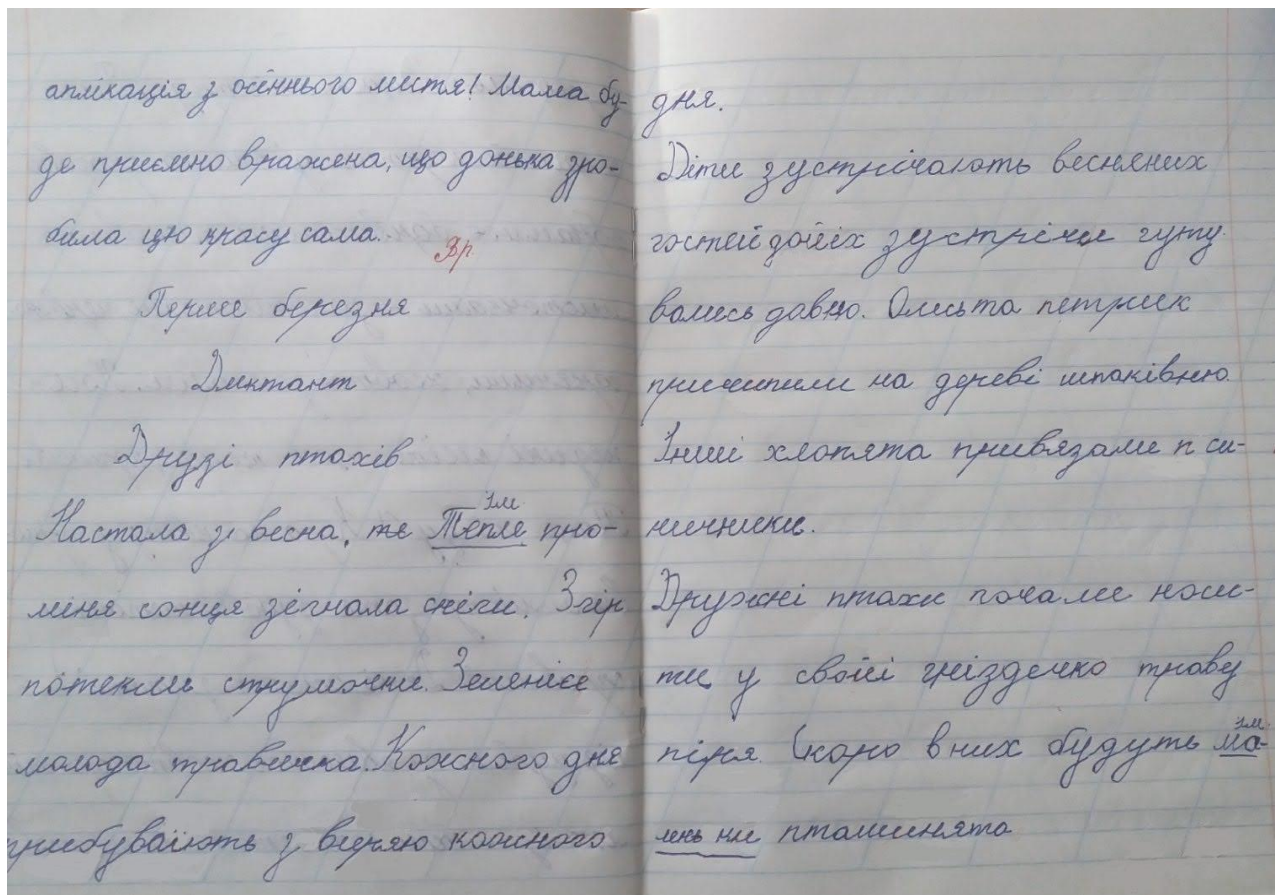 аплікація з осіннього листя! Мама бу-
де приємно вражена, що донька зро-
била цю красу сама.
Зр.
Перше березня
Диктант
Друзі птахів
Ім.
Настала зі весна, те Тепле про-
міня сонця зігнала сніги. Згір
потекли струмочки. Зеленіє
молода травичка. Кожного дня
прибувають з виряю кожного
дня.
Діти зустрічають весняних
гостей дойіх зустрічи гуту
вались давно. Олисьта петрик
причипили на дереві шпаківню.
Інші хлопята привязали п си-
ничники.
Дружні птахи почали носи-
ти у своїі гніздечко траву
піря. Скоро в них будуть ма-
Ім.
лень ки пташинята